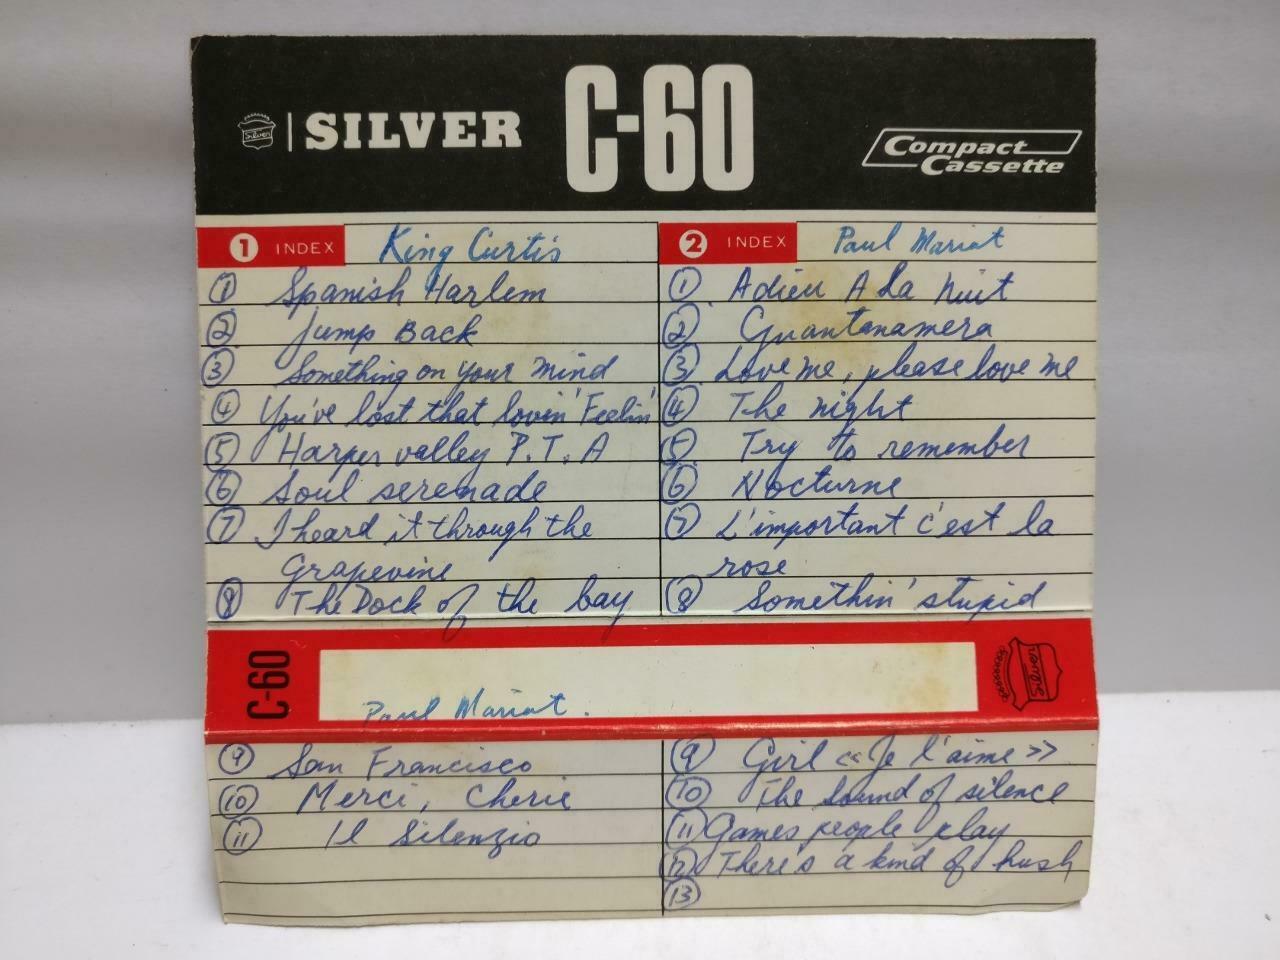 Silver | SILVER C-60 Compact Cassette
1 INDEX King Curtis
① Spanish Harlem
② Jump Back
③ Something on your mind
④ You've lost that lovin' Feelin'
⑤ Harper valley P.T.A
⑥ Soul serenade
⑦ I heard it through the
Grapevine
⑧ The Dock of the bay
2 INDEX Paul Mariat
① Adieu A La Nuit
② Guantanamera
③ Love me, please love me
④ The night
⑤ Try to remember
⑥ Nocturne
⑦ L'important c'est la
rose
⑧ Somethin' stupid
C-60
Paul Mariat.
Silver
⑨ San Francisco
⑩ Merci, Cherie
⑪ Il Silenzio
⑨ Girl «Je l'aime»
⑩ The Sound of silence
⑪ Games people play
⑫ There's a kind of hush
⑬